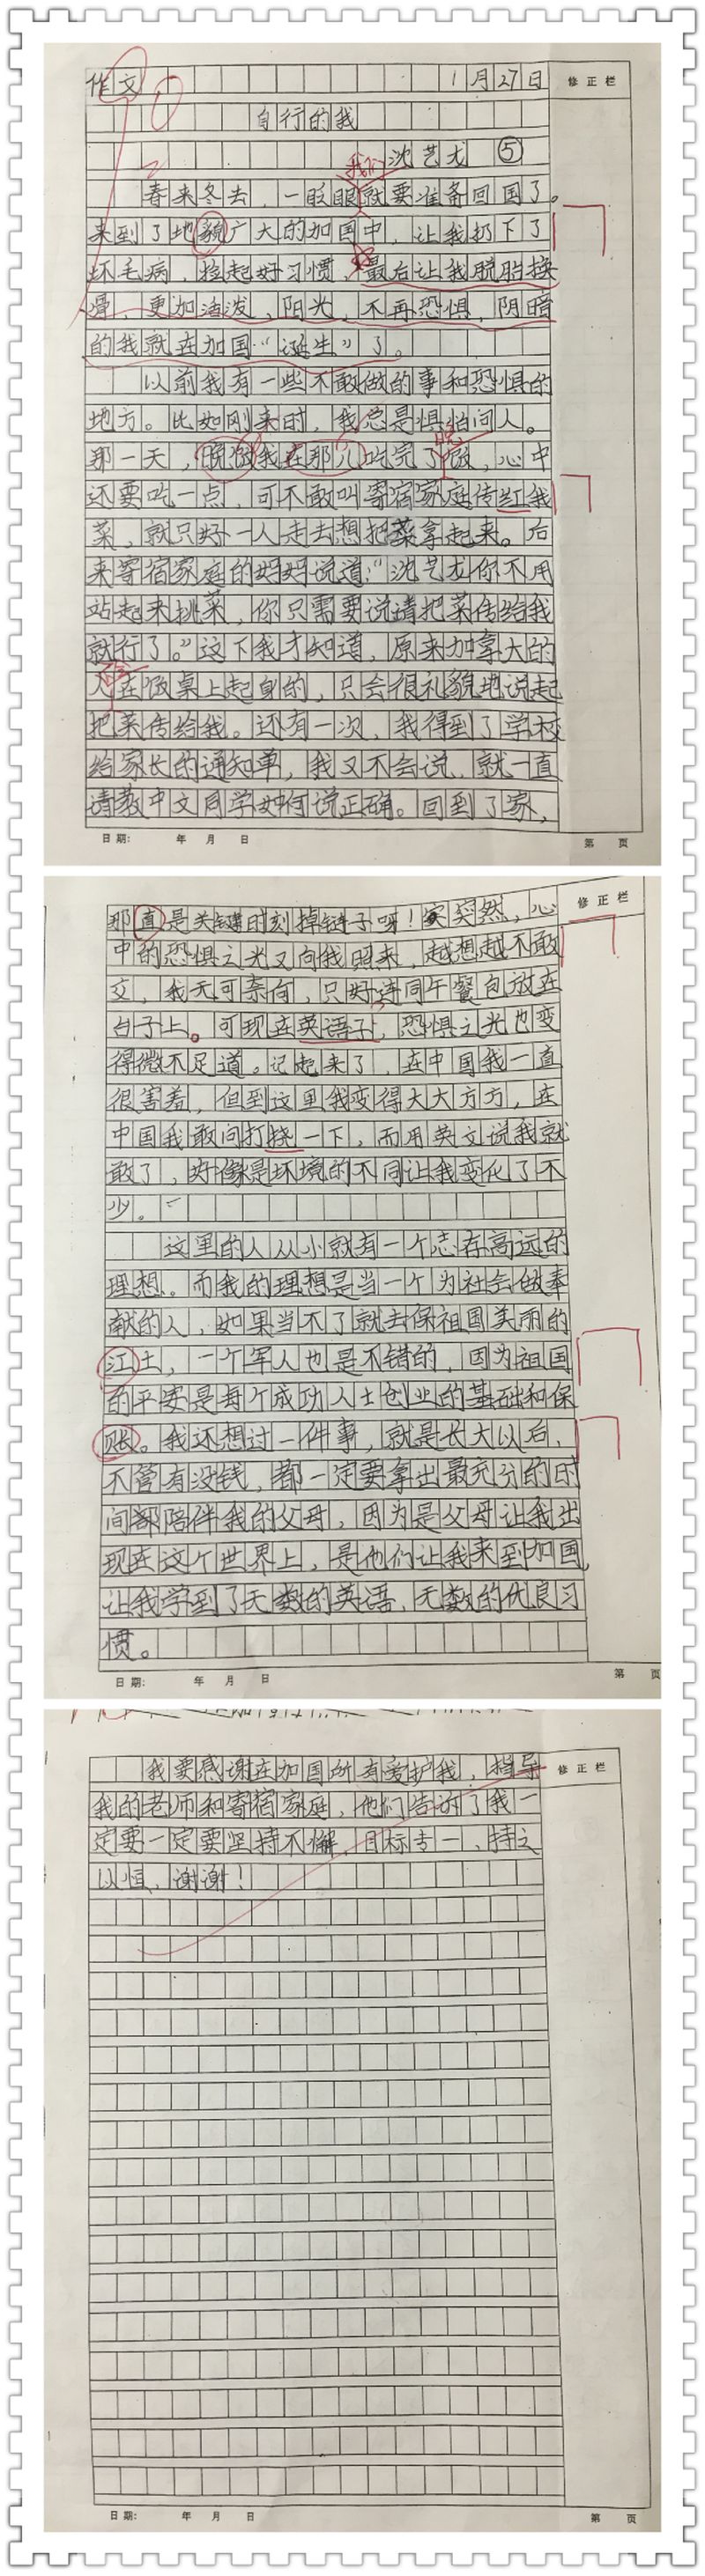 作文 1月27日 修正栏
自行的我
沈艺尤 ⑤
我们
春来冬去，一眨眼就要准备回国了。
来到了地貌广大的加国中，让我扔下了
坏毛病，捡起好习惯，最后让我脱胎换
骨，更加活泼，阳光，不再恐惧，阴暗
的我就在加国“诞生”了。
以前我有一些不敢做的事和恐惧的
地方。比如刚来时，我总是惧怕问人。
晚
那一天，晚饭我在那儿吃完了饭，心中
还要吃一点，可不敢叫寄宿家庭传红我
菜，就只好一人走去想把菜拿起来。后
来寄宿家庭的妈妈说道：“沈艺尤你不用
站起来挑菜，你只需要说请把菜传给我
就行了。”这下我才知道，原来加拿大的
人在饭桌上起身的，只会很礼貌地说起
把菜传给我。还有一次，我得到了学校
给家长的通知单，我又不会说，就一直
请教中文同学如何说正确。回到了家，
日期： 年 月 日 第 页
那直是关键时刻掉链子呀！突然，心 修正栏
中的恐惧之光又向我照来，越想越不敢
交，我无可奈何，只好连同午餐包放在
台子上。可现在英语子，恐惧之光也变
得微不足道。记起来了，在中国我一直
很害羞，但到这里我变得大大方方，在
中国我敢问打挠一下，而用英文说我就
敢了，好像是环境的不同让我变化了不
少。
这里的人从小就有一个志存高远的
理想。而我的理想是当一个为社会做奉
献的人，如果当不了就去保祖国美丽的
江土，一个军人也是不错的，因为祖国
的平安是每个成功人士创业的基础和保
账。我还想过一件事，就是长大以后，
不管有没钱，都一定要拿出最充分的时
间都陪伴我的父母，因为是父母让我出
现在这个世界上，是他们让我来到加国，
让我学到了无数的英语，无数的优良习
惯。
日期： 年 月 日 第 页
我要感谢在加国所有爱护我，指导 修正栏
我的老师和寄宿家庭，他们告诉了我一
定要一定要坚持不懈，目标专一，持之
以恒，谢谢！
日期： 年 月 日 第 页